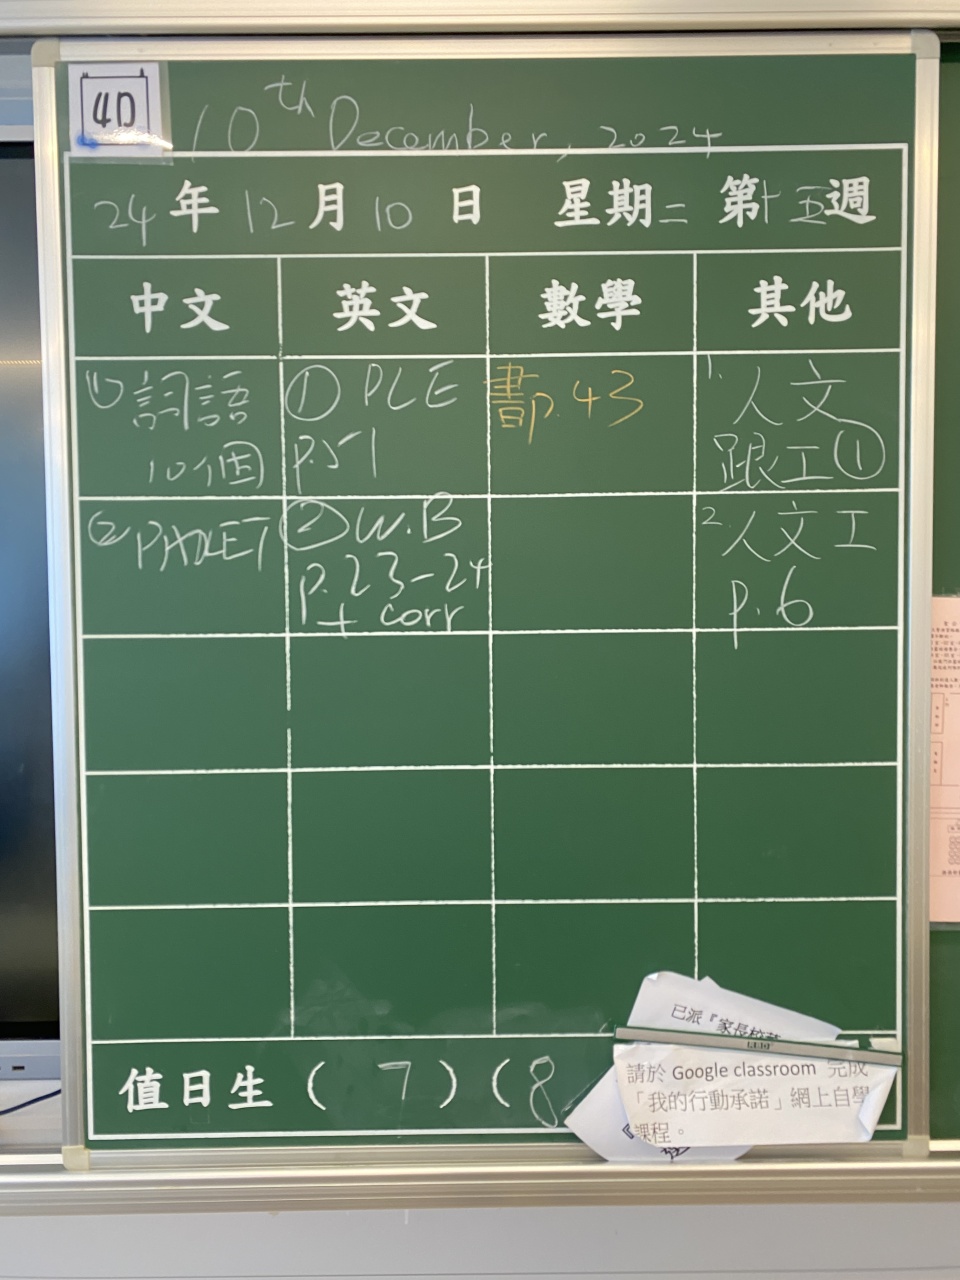 4D
10th December, 2024
24年12月10日 星期二 第十五週
中文 英文 數學 其他
(1) 詞語
10個
① PLE
p.51
書p.43
1. 人文
跟工①
(2) PADLET
② W.B
p.23-24
+ corr
2. 人文工
p.6
已派『家長校
請於 Google classroom 完成
「我的行動承諾」網上自學
課程。
值日生 ( 7 ) ( 8